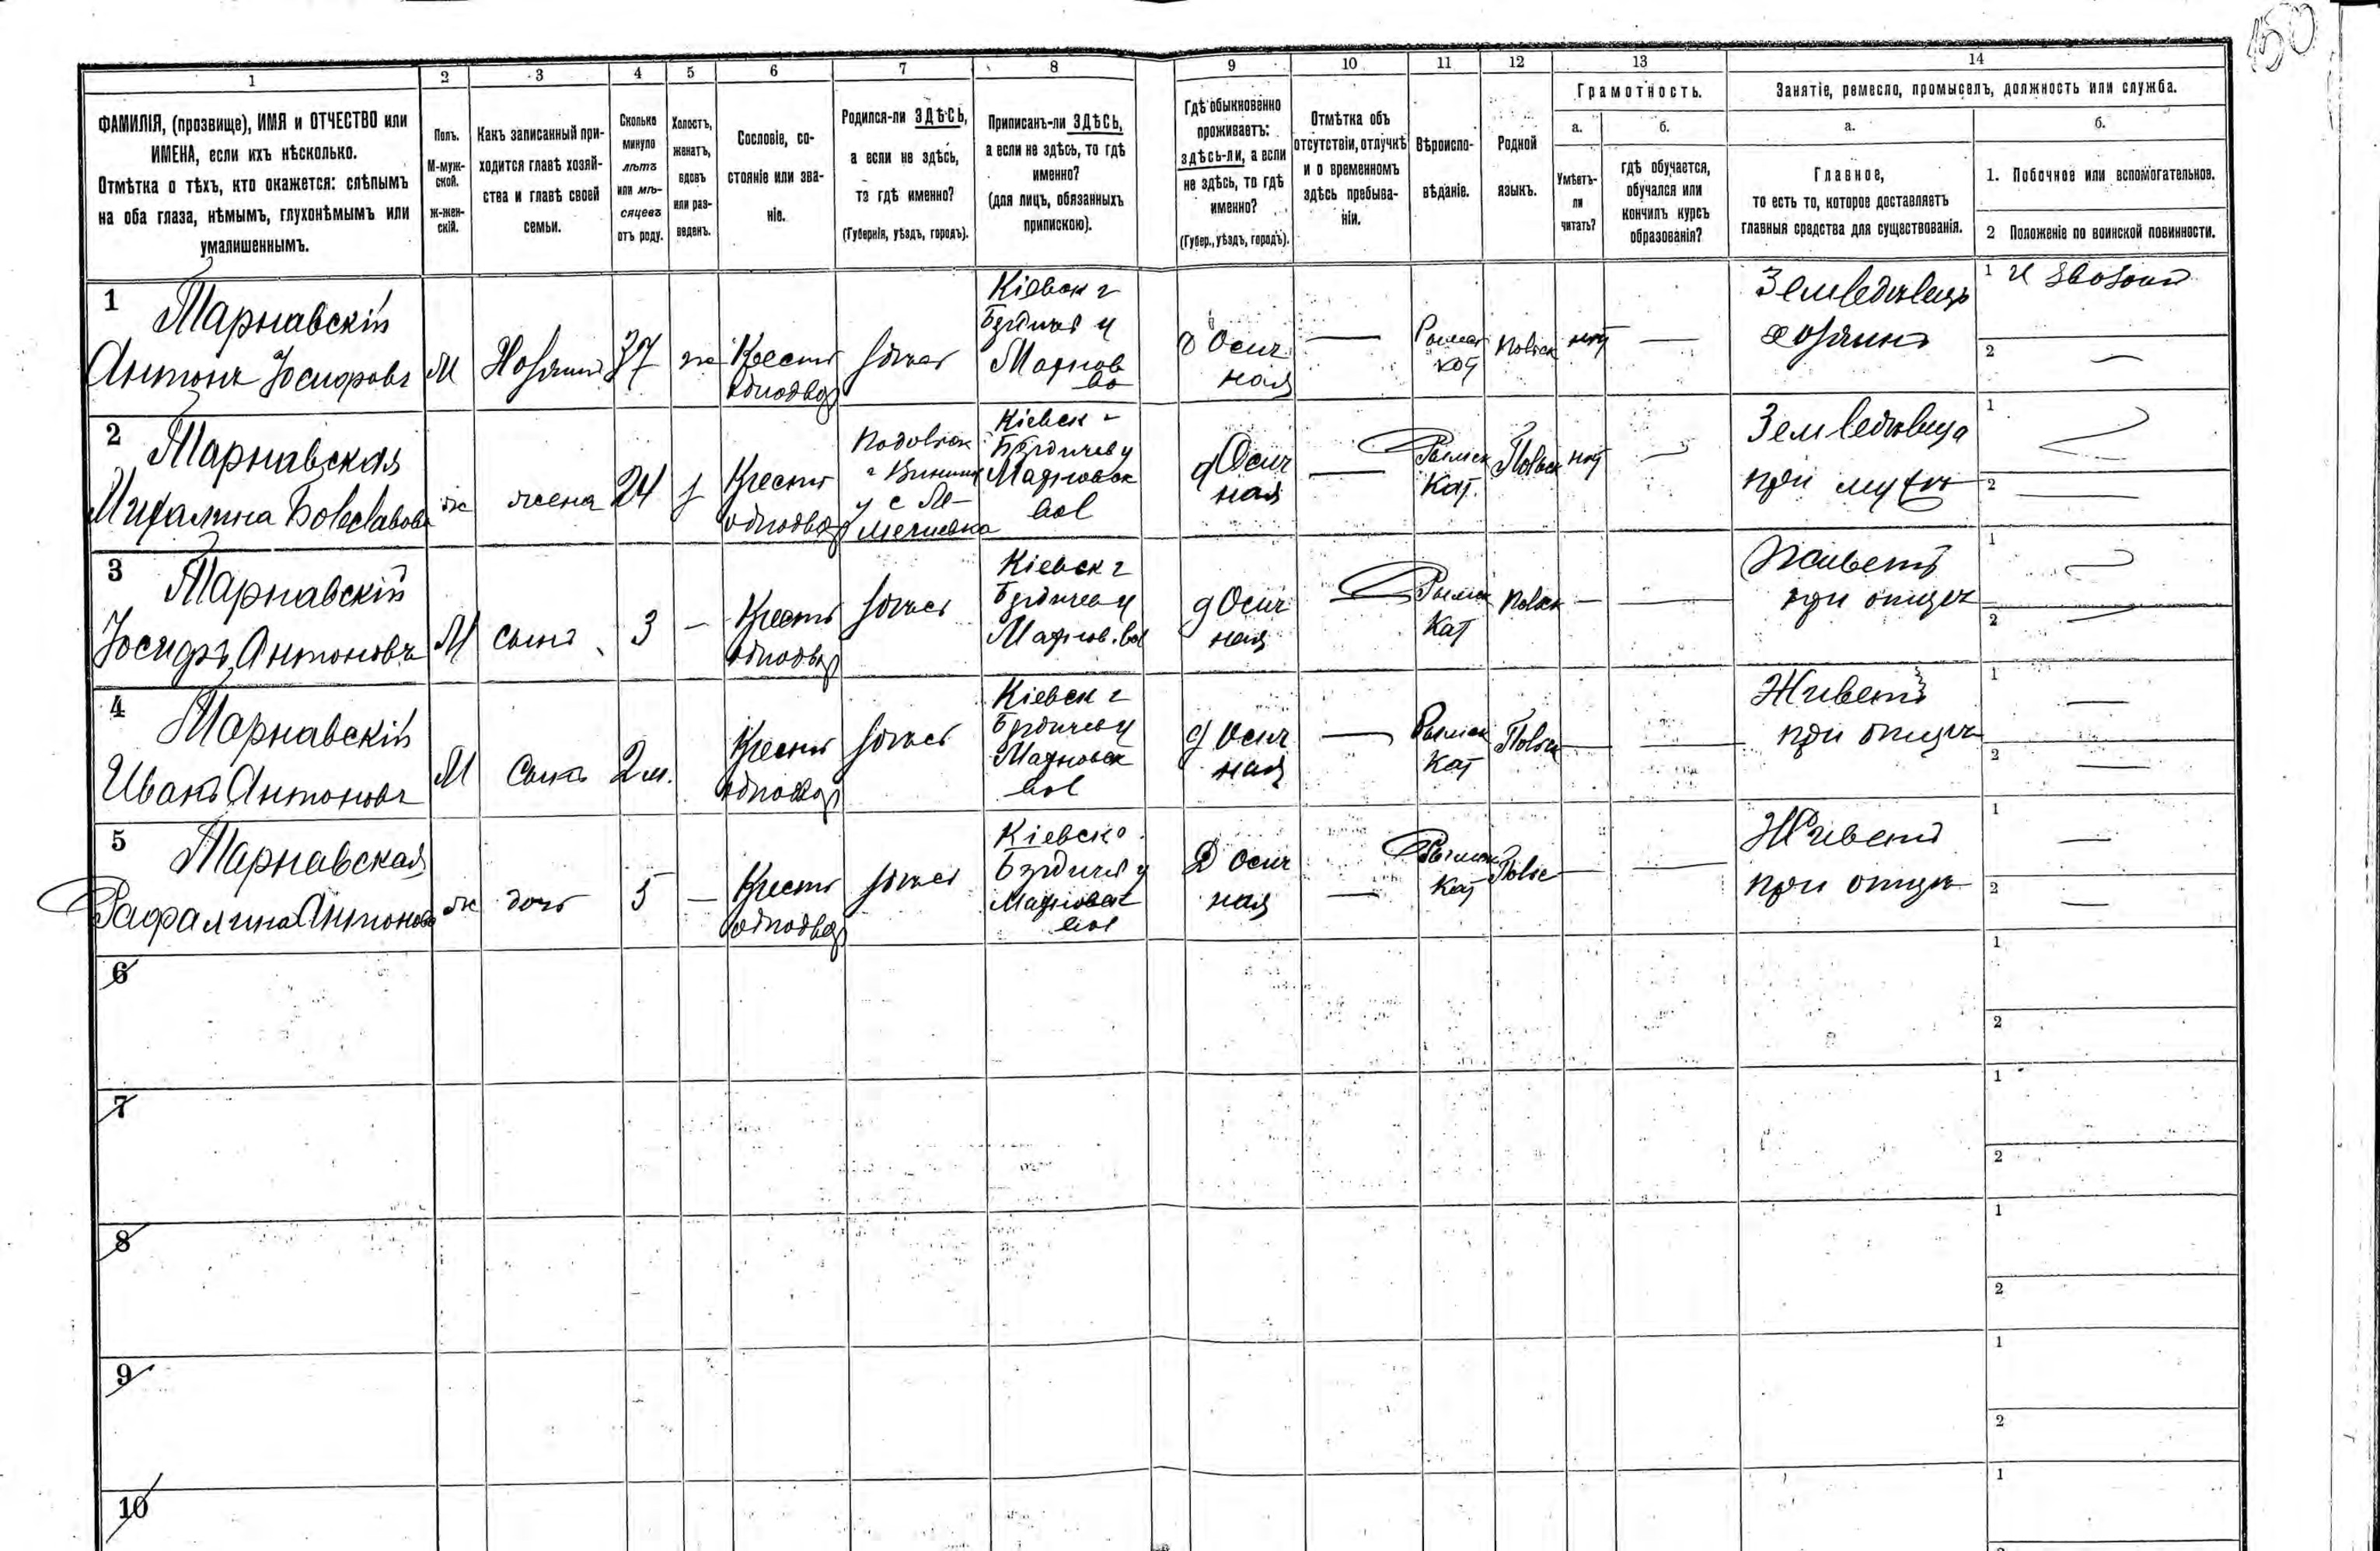 150
1
2
3
4
5
6
7
8
9
10
11
12
13
14
ФАМИЛІЯ, (прозвище), ИМЯ и ОТЧЕСТВО или
ИМЕНА, если ихъ нѣсколько.
Отмѣтка о тѣхъ, кто окажется: слѣпымъ
на оба глаза, нѣмымъ, глухонѣмымъ или
умалишеннымъ.
Полъ.
М-муж-
ской.
Ж-жен-
скій.
Какъ записанный при-
ходится главѣ хозяй-
ства и главѣ своей
семьи.
Сколько
минуло
лѣтъ
или мѣ-
сяцевъ
отъ роду.
Холостъ,
женатъ,
вдовъ
или раз-
веденъ.
Сословіе, со-
стояніе или зва-
ніе.
Родился-ли ЗДѢСЬ,
а если не здѣсь,
то гдѣ именно?
(Губернія, уѣздъ, городъ).
Приписанъ-ли ЗДѢСЬ,
а если не здѣсь, то гдѣ
именно?
(для лицъ, обязанныхъ
припискою).
Гдѣ обыкновенно
проживаетъ:
здѣсь-ли, а если
не здѣсь, то гдѣ
именно?
(Губер., уѣздъ, городъ).
Отмѣтка объ
отсутствіи, отлучкѣ
и о временномъ
здѣсь пребыва-
ніи.
Вѣроиспо-
вѣданіе.
Родной
языкъ.
Грамотность.
а.
Умѣетъ-
ли
читать?
б.
гдѣ обучается,
обучался или
кончилъ курсъ
образованія?
Занятіе, ремесло, промыселъ, должность или служба.
а.
Главное,
то есть то, которое доставляетъ
главныя средства для существованія.
б.
1. Побочное или вспомогательное.
2 Положеніе по воинской повинности.
1 Тарнавскій
Антонъ Іосифовъ
М
Хозяинъ
37
ж
Крестъ
однодвор
здѣсь
Кіевск г
Бердичев у
Махнов
во
д Осич
ная
—
Римск
кат
Польск
нѣт
—
Земледѣлецъ
хозяинъ
1
2 —
2 Тарнавская
Михалина Болеславова
ж
жена
24
з
Крестъ
однодвор
Подольск
г Винниц
у с
Кіевск г
Бердичев у
Махновск
вол
д Осич
ная
—
Римск
Кат.
Польск
нѣт
—
Земледѣлица
при мужѣ
1 —
2 —
3 Тарнавскій
Іосифъ Антоновъ
М
сынъ
3
—
Крестъ
однодвор
здѣсь
Кіевск г
Бердичев у
Махнов. вол
д Осич
ная
—
Римск
Кат
Польск
—
—
Живетъ
при отцѣ
1 —
2 —
4 Тарнавскій
Иванъ Антоновъ
М
Сынъ
2 м.
Крестъ
однодвор
здѣсь
Кіевск г
Бердичев у
Махновск
вол
д Осич
ная
—
Римск
Кат
Польск
—
—
Живетъ
при отцѣ
1 —
2 —
5 Тарнавская
Рафалина Антонова
ж
дочь
5
—
Крестъ
однодвор
здѣсь
Кіевск г
Бердичев у
Махновск
вол
Д Осич
ная
—
Римск
Кат
Польс
—
—
Живетъ
при отцѣ
1 —
2 —
6
1
2
7
1
2
8
1
2
9
1
2
10
1